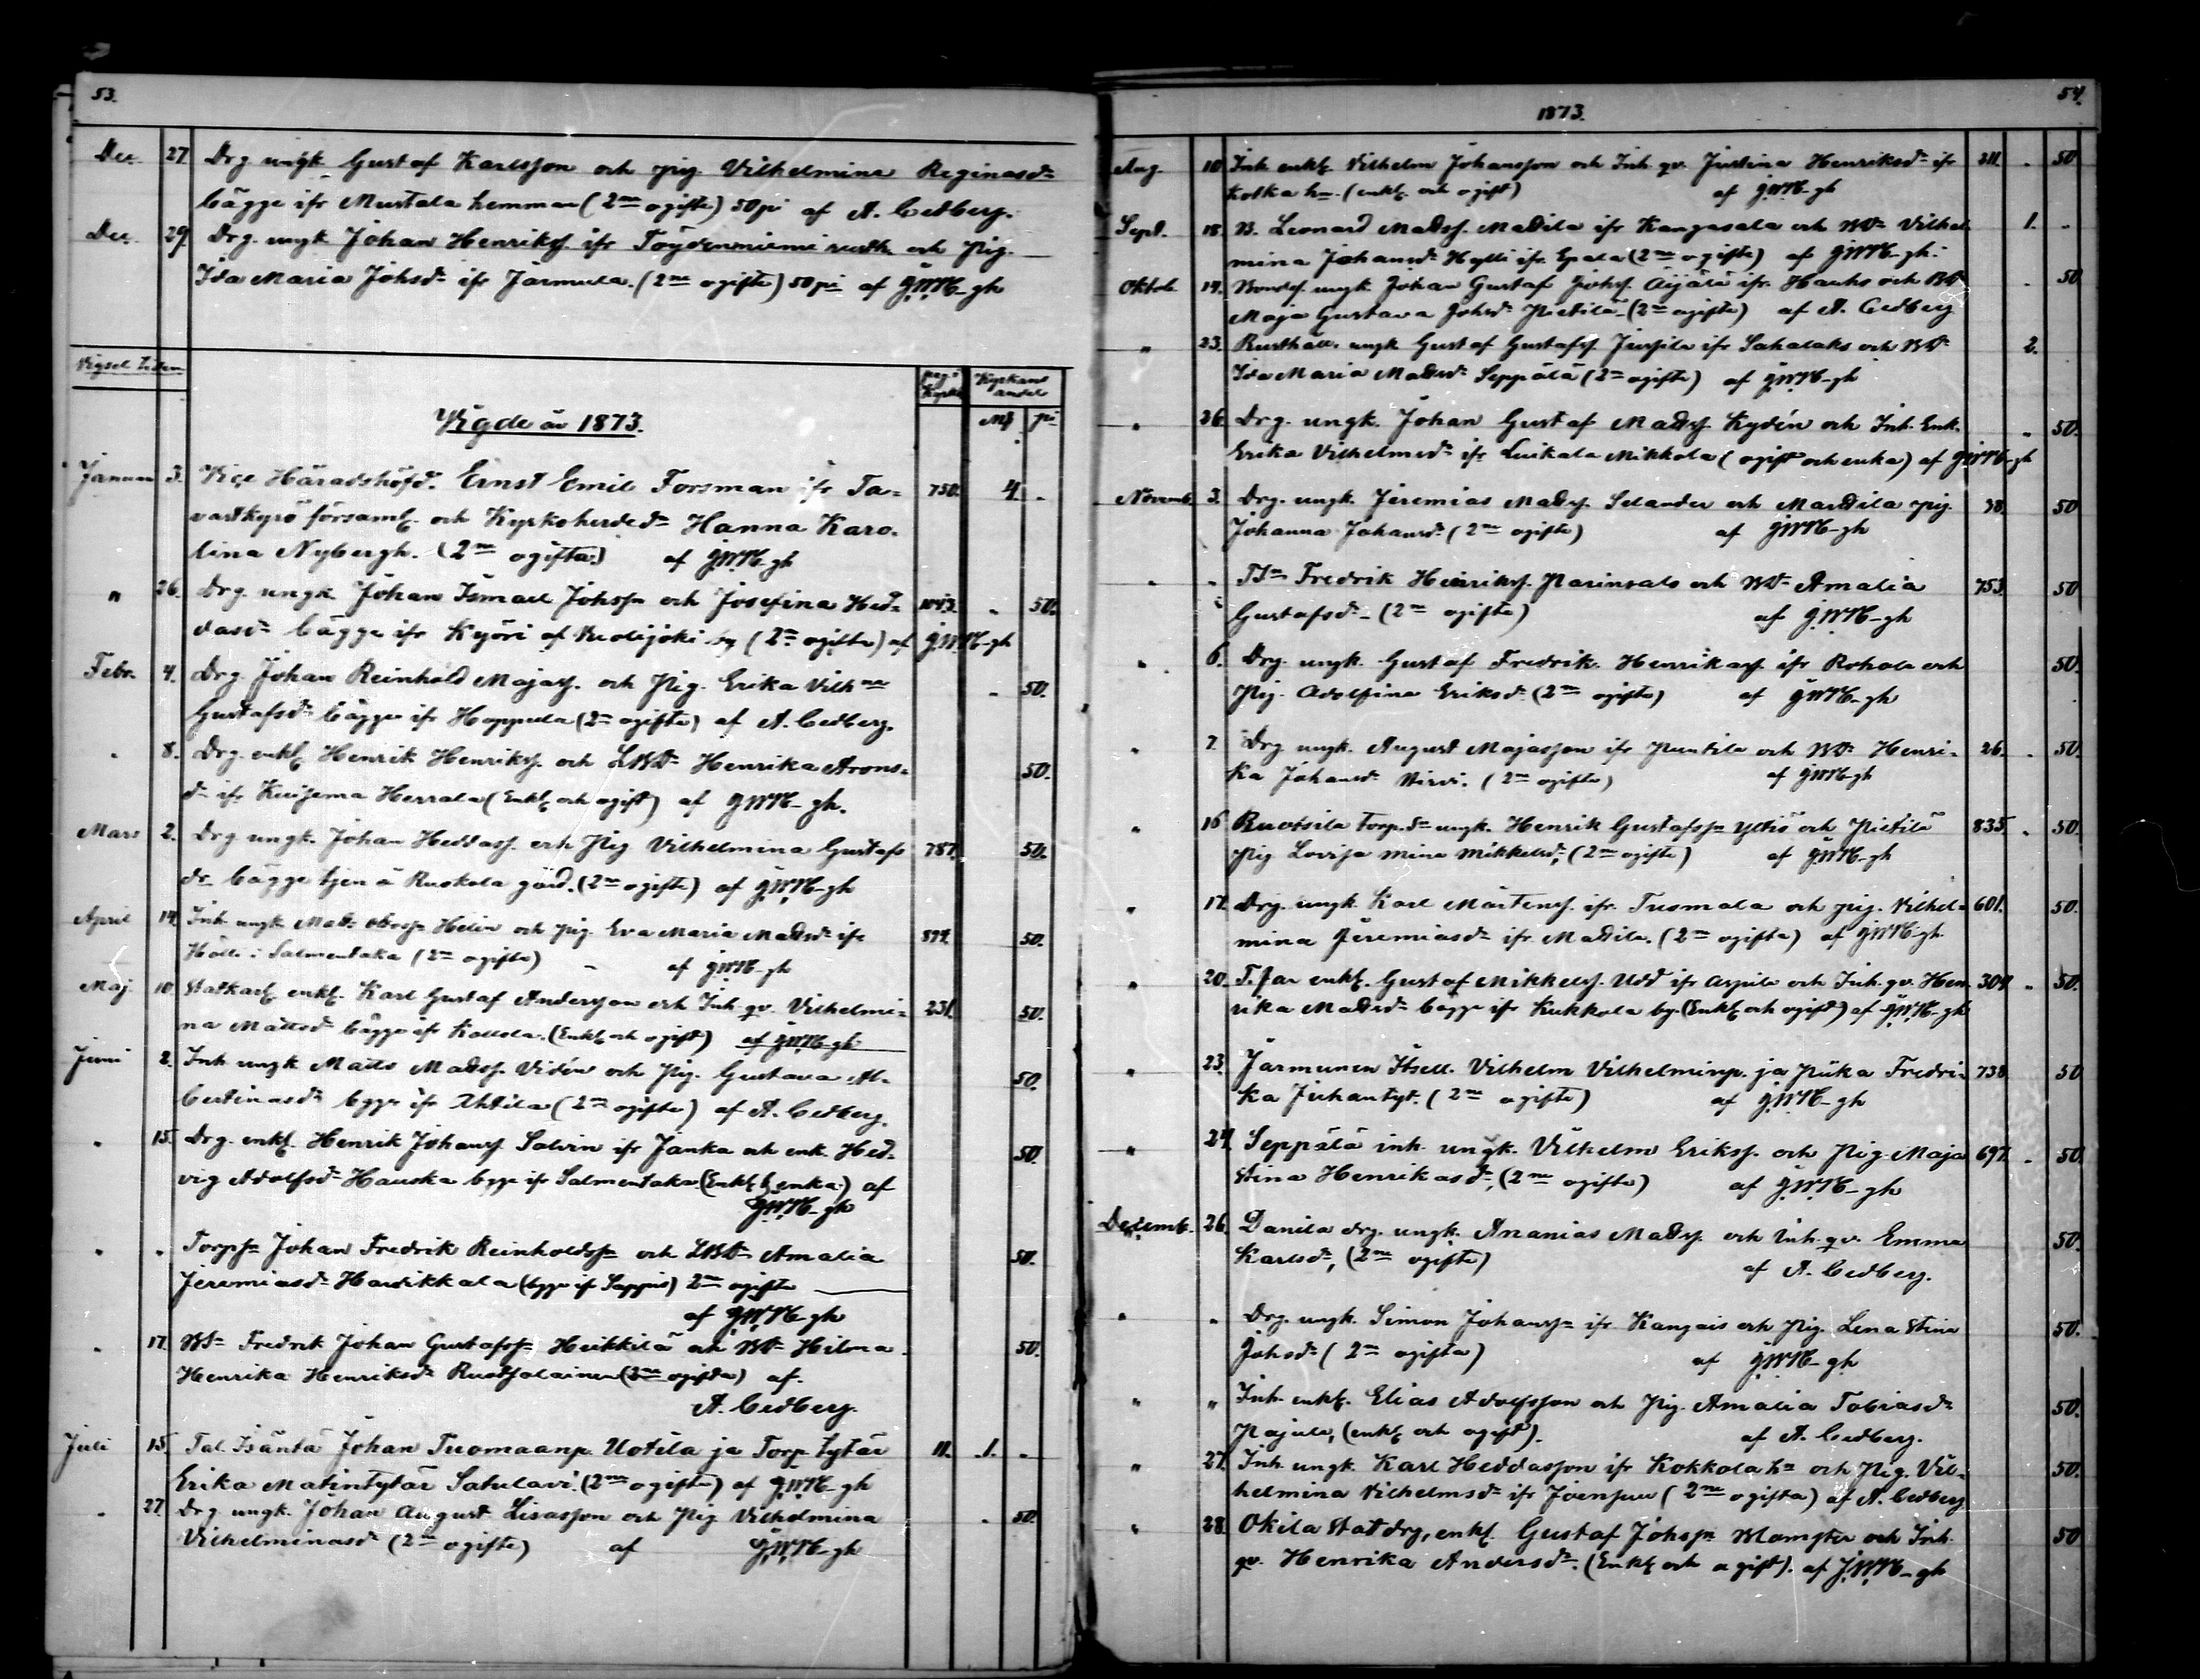 53.
Dec. 27. Drg ungk Gustaf Karlsson och pig. Vilhelmina Reginasdr
bägge ifr Mustala hemman (2ne ogifte) 50 pi af A. Cedberg.
Dec. 29. Drg. ungk Johan Henrikss. ifr rusth. och Pig.
Ida Maria Johsdr ifr Jarmula. (2ne ogifte) 50 pi af
Vigsel tiden
pag. i Kyrkob. Kyrkans andel
Mk pi
Vigde år 1873.
Januari 3. Viçe Häradshöfd. Ernst Emil Forsman ifr Ta- 750. 4. -
vastkyrö församl. och Kyrkoherdedr Hanna Karo-
lina Nybergh. (2ne ogifta.) af
" 26. Drg. ungk Johan Ismael Johssn och Josefina Hed- 50.
dasdr bägge ifr af (2ne ogifta) af
Febr. 4. Drg. Johan Reinhold Majass. och Pig. Erika Vilhna - 50.
Gustafsdr bägge ifr Hoppula (2ne ogifta) af A. Cedberg.
" 8. Drg. enkl Henrik Henrikss. och LBdr Henrika Arons- 50.
dr ifr Kuisema Herrala (Enkl och ogift) af
Mars 2. Drg ungk. Johan Heddass. och Pig Vilhelmina Gustafs 787. 50.
dr bägge tjen å Ruokola gård. (2ne ogifte) af
April 14. Inh. ungk Matts Helin och Pig. Eva Maria Mattsdr ifr 50.
Hölli i Salmentaka (2ne ogifte) af
Maj 10. Statkarl enkl. Karl Gustaf Andersson och Inh. qv. Vilhelmi- 231. 50.
na Mattsdr bägge ifr (Enkl och ogift) af
Juni 2. Inh ungk Matts Matss. Vidén och Pig. Gustava Al- 50.
bertinasdr bgge ifr Ahtila (2ne ogifte) af A. Cedberg.
" 15. Drg. enkl. Henrik Johanss. Salvin ifr Janka och enk. Hed- 50.
vig Adolfsdr Hauska bgge ifr Salmentaka (Enkl & enka) af
" " Torpsn Johan Fredrik Reinholdssn och LBdr Amalia 50.
Jeremiasdr Hardikkala (bgge if Sappis) 2ne ogifte
af
" 17. BSn Fredrik Johan Gustafssn Heikkilä och Bdr Hilma 50.
Henrika Henriksdr Ruotsalainen (2ne ogifta) af
A. Cedberg.
Juli 15. Tal. Isäntä Johan Tuomaanp. Uotila ja Torp. tytär 11. 1. -
Erika Matintytär Satulavi. (2ne ogifte) af
" 27. Drg ungk. Johan August Lisasson och Pig Vilhelmina - 50.
Vilhelminasdr (2ne ogifte) af
1873.
54.
Aug. 10. Inh. enkl. Vilhelm Johansson och Inh. qv. Justina Henriksdr ifr 211. - 50
Kotka hn. (enkl. och ogift) af
Sept. 18. B. Leonard Matss. Mattila ifr Kangasala och Bdr Vilhel- 1. -
mina Johansdr Hylli ifr Epala (2ne ogifte) af
Oktob. 14. Bondes. ungk Johan Gustaf Johss. Äijälä ifr. Hauho och Bdr - 50
Maja Gustava Johsdr Pietilä (2ne ogifte) af A. Cedberg
" 23. Rusthåll. ungk Gustaf Gustafss. Jussila ifr Sahalaks och Bdr 2.
Ida Maria Mattsdr Seppälä (2ne ogifte) af
" 26. Drg. ungk. Johan Gustaf Matss. Kydén och Inh. Enk. " 50.
Erika Vilhelmsdr ifr Luikala Mikkola (ogift och enka) af
Novemb. 3. Drg. ungk. Jeremias Matss. Selander och Marttila pig. 38. 50
Johanna Johansdr (2ne ogifte) af
" " TSn Fredrik Heinrikss. Parinsalo och Bdr Amalia 753. 50
Gustafsdr - (2ne ogifte) af
" 6. Drg. ungk. Gustaf Fredrik. Henrikass. ifr Rohola och 50.
Pig. Adolfina Eriksdr (2ne ogifte) af
" 7. Drg ungk. August Majasson ifr Puntila och Bdr Henri- 26. - 50.
ka Johansdr Virvi. (2ne ogifte) af
" 16 Ruotsila Torp.sn ungk. Henrik Gustafssn Yltiö och Pietilä 835. - 50.
Pig Lovisa Mina Mikkelsdr, (2ne ogifte) af
" 17. Drg. ungk Karl Mårtenss. ifr. Tuomala och pig. Vilhel- 601. 50.
mina Jeremiasdr ifr Mattila. (2ne ogifta) af
" 20. T.far enkl. Gustaf Mikkelss. Udd ifr Arpila och Inh. qv. Hen- 304. - 50.
rika Mattsdr bägge ifr Kukkola by. (Enkl och ogift) af
" 23. Jarmunen Itsell. Vilhelm Vilhelminp. ja Piika Fredri- 738 50
ka Juhantyt. (2ne ogifte) af
" 24. Seppälä inh. ungk. Vilhelm Erikss. och Pig. Maja 697. - 50
Stina Henrikasdr, (2ne ogifte) af
Decemb. 26. Danila drg. ungk. Ananias Matss. och Inh. qv. Emma 50.
Karlsdr, (2ne ogifte) af A. Cedberg.
" " Drg. ungk. Simon Johanssn ifr Kangais och Pig. Lena Stina 50.
Johsdr (2ne ogifta) af
" " Inh. enkl. Elias Adolfsson och Pig. Amalia Tobiasdr 50.
Pajula, (enkl och ogift). af A. Cedberg.
" 27. Inh. ungk. Karl Heddasson ifr Kokkola hn och Pig. Vil- 50.
helmina Vilhelmsdr ifr Joensuu (2ne ogifta) af A. Cedberg
" 28. Okila Statdrg, enkl. Gustaf Johssn och Inh. 50
qv. Henrika Andersdr. (Enkl och ogift). af